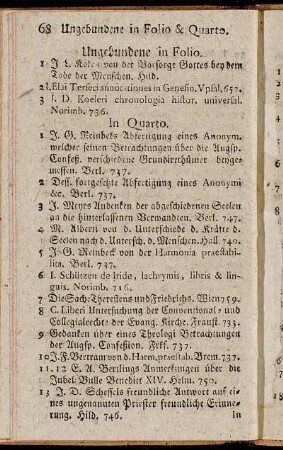 68 Ungebundene in Folio & Quarto.
Ungebundene in Folio.
1 J. L. von der Vorsorge Gottes bey dem
Tode der Menschen. Hild.
2 J. Elai Terseri annotationes in Genesin. Vpsal. 657.
3 J. D. Koeleri chronologia histor. universal.
Norimb. 736.
In Quarto.
1 J. G. Reinbeks Abfertigung eines Anonym.
welcher seinen Betrachtungen über die Augsp.
Confeß. verschiedene Grundirthümer beyge-
messen. Berl. 737.
2 Dess. fortgesetzte Abfertigung eines Anonymi
&c. Berl. 737.
3 J. Meyes Andenken der abgeschiedenen Seelen
an die hinterlassenen Verwandten. Berl. 747.
4 M. Alberti von d. Unterschiede d. Kräfte d.
Seelen nach d. Untersch. d. Menschen. Hall. 740.
5 J. G. Reinbeck von der Harmonia praestabi-
lita. Berl. 737.
6 J. Schützen de Iride, lachrymis, libris & lin-
guis. Norimb. 716.
7 Die Sach: Theresiens und Friedrichs. Wien 759.
8 C. Liberi Untersuchung der Conventional- und
Collegialrechte der Evang. Kirche. Fraust. 733.
9 Gedanken über eines Theologi Betrachtungen
der Augsp. Confession. Frkf. 737.
10 J. F. Bertram von d. Harm. praestab. Brem. 737.
11. 12 E. A. Bertlings Anmerkungen über die
Jubel-Bulle Benedict XIV. Helm. 750.
13 J. D. Scheffels freundliche Antwort auf ei-
nes ungenanten Priester freundliche Erinne-
rung. Hild. 746.
In